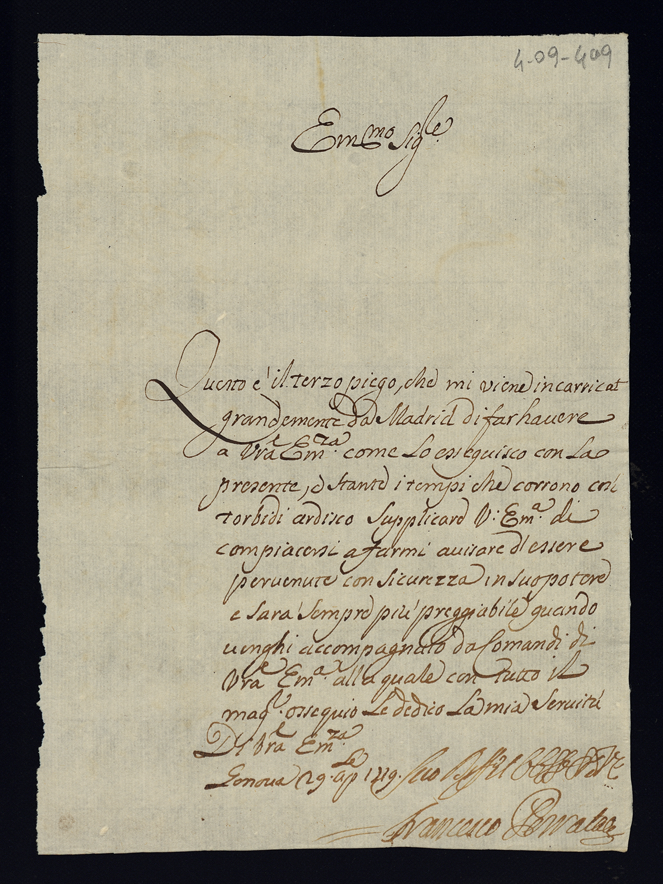 4-09-409
Em.mo Sig.re
Questo e' il terzo piego, che mi viene incarricat
grandemente da Madrid di far havere
a Vra Em.za come Lo esseguisco con La
presente, e stante i tempi che corrono così
torbidi ardisco Supplicare V: Em.a di
compiacersi a farmi avisare d'essere
pervenute con sicurezza in suo potere
e sara' sempre più preggiabile quando
venghi accompagnato da Comandi di
Vra Em.a alla quale con tutto il
mag.r ossequio Le dedico La mia Servitù
Di Vra Em.za
Genova 29. 1719.
Francesco